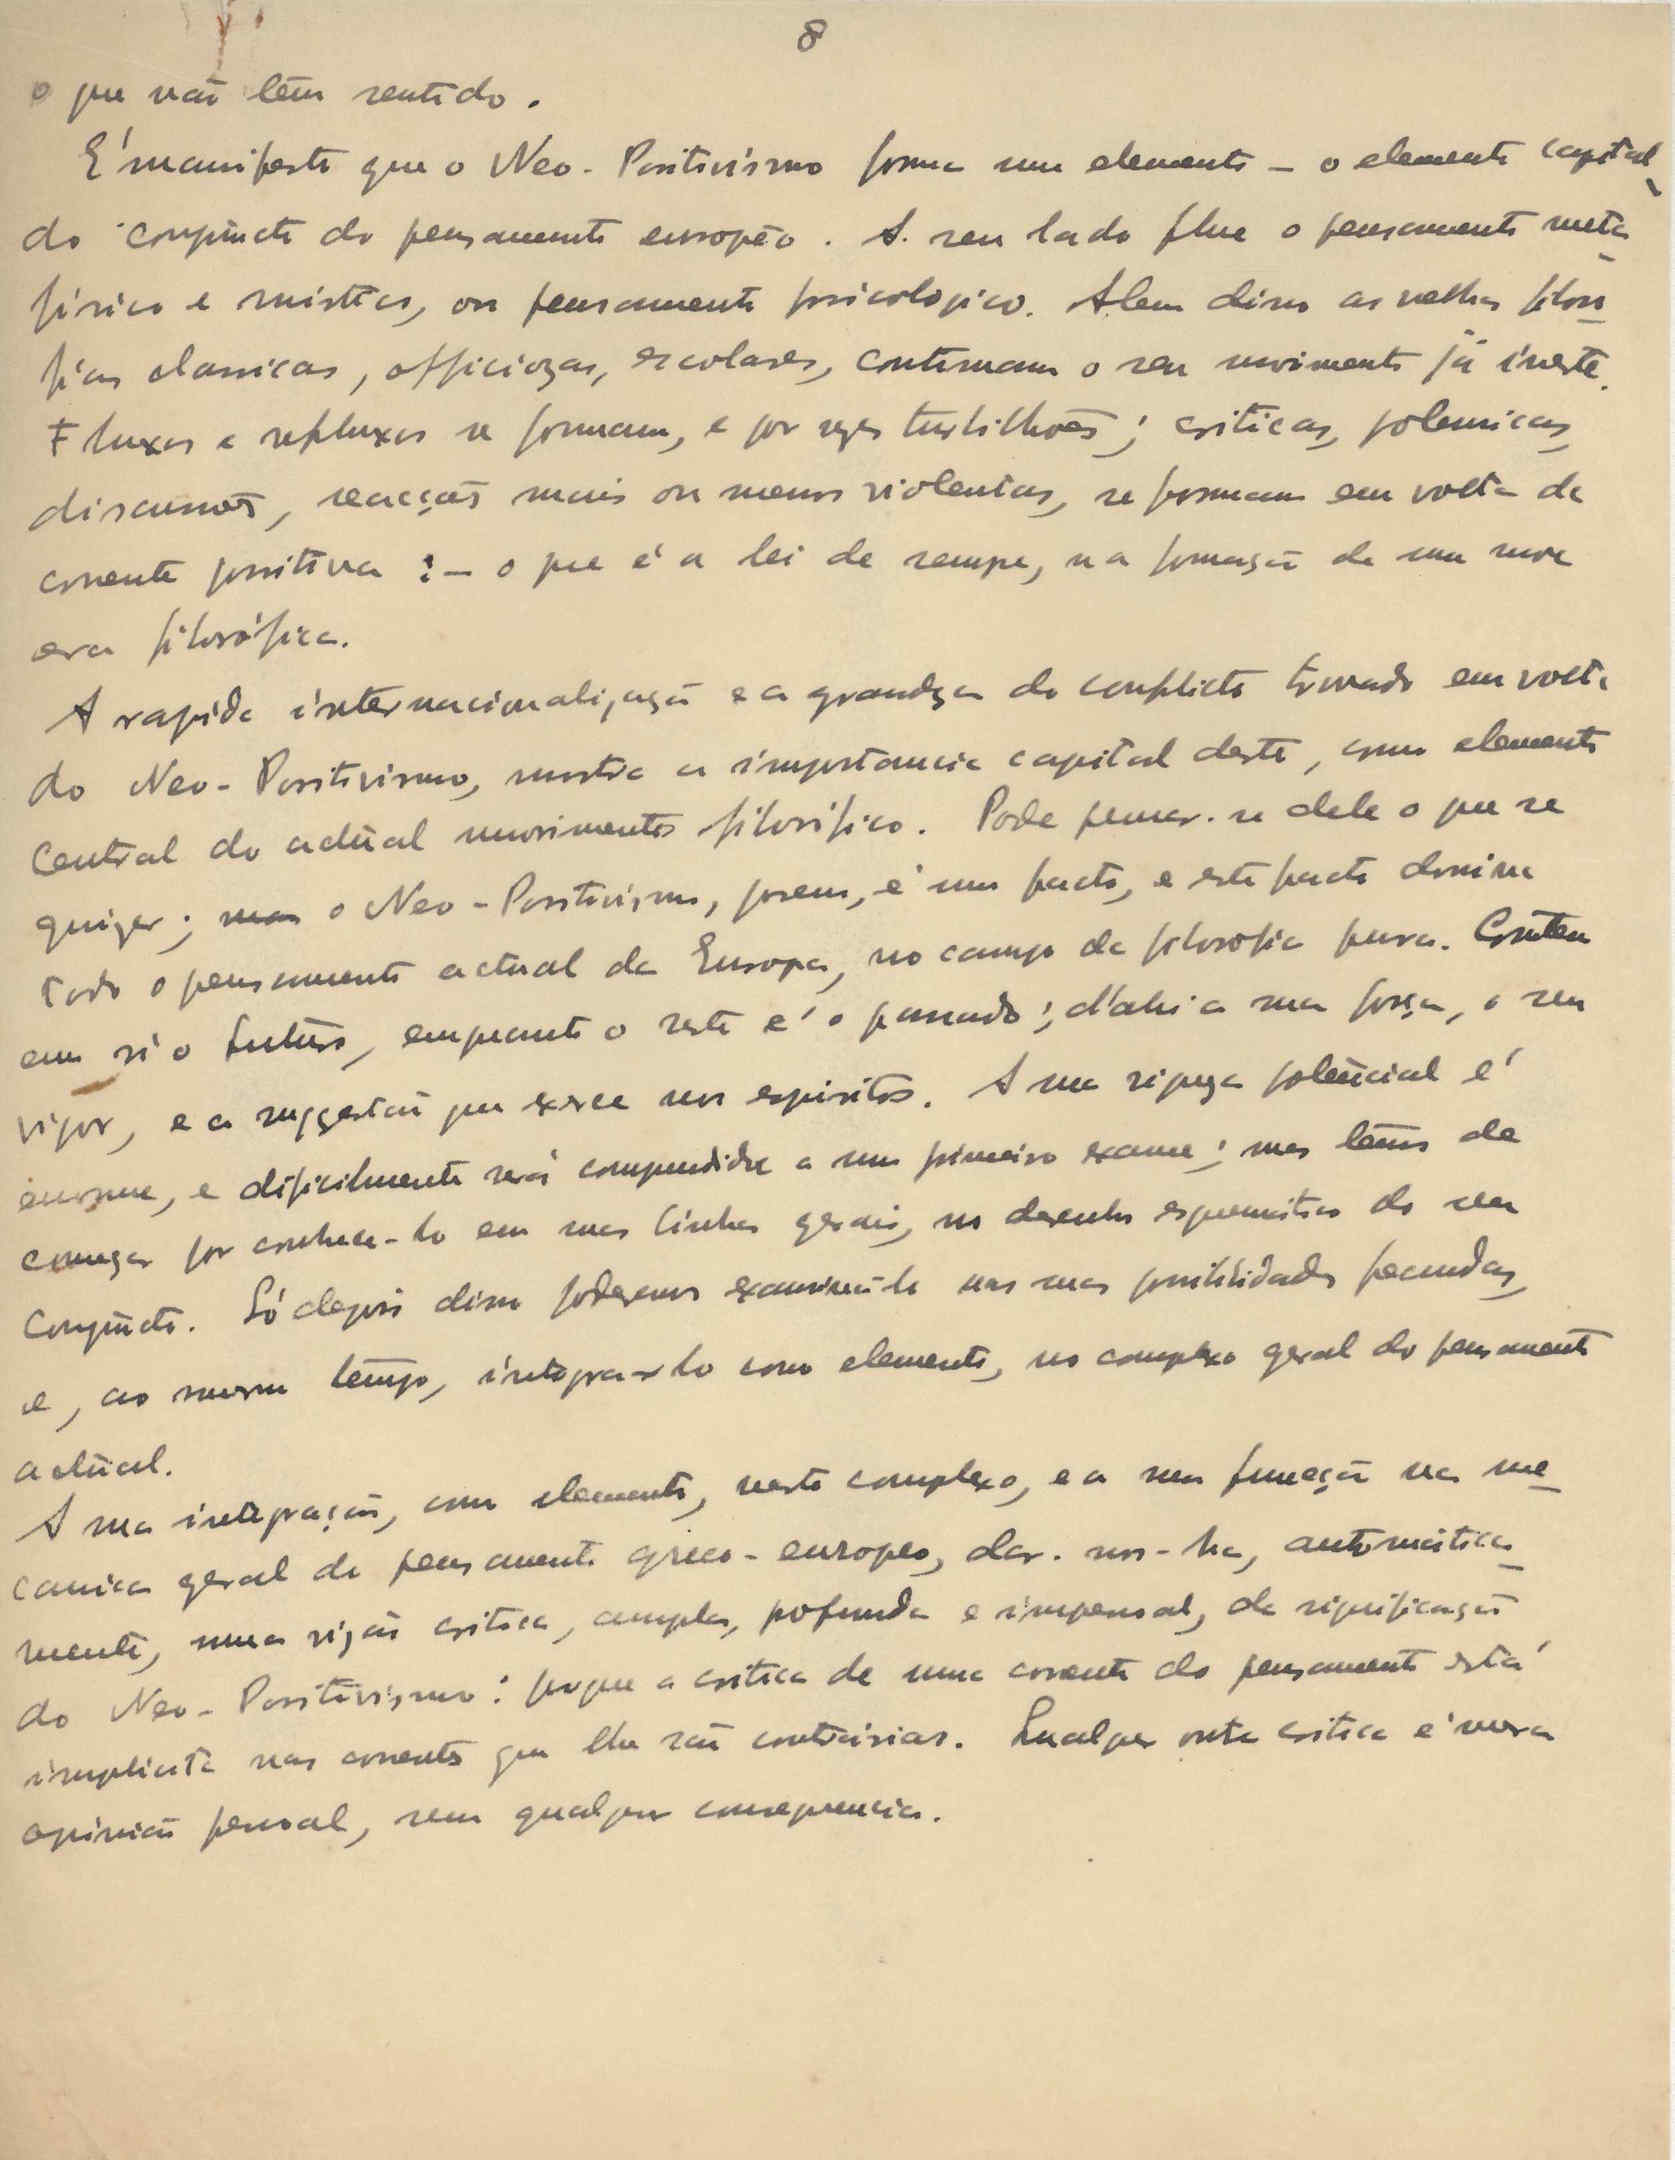 8
o que não têm sentido.
E' manifesto que o Neo-Positivismo forma um elemento – o elemento capital
do conjuncto do pensamento europêo. A seu lado flue o pensamento meta-
fisico e mistico, ou pensamento psicologico. Alem disso as velhas filoso-
fias classicas, officiozas, escolares, continuam o seu movimento já inerte.
Fluxos e refluxos se formam, e por vezes turbilhões; criticas, polemicas,
discussões, reacções mais ou menos violentas, se formam em volta da
corrente positiva: – o que é a lei de sempre, na formação de uma nova
era filosófica.
A rapida internacionalização e a grandeza do conflicto travado em volta
do Neo-Positivismo, mostra a importancia capital deste, como elemento
central do actual movimento filosófico. Pode pensar-se dele o que se
quizer; mas o Neo-Positivismo, porem, é um facto, e este facto domina
todo o pensamento actual da Europa, no campo da filosofia pura. Contem
em si o futuro, emquanto o resto é o passado; d'ahi a sua força, o seu
vigor, e a suggestão que exerce nos espiritos. A sua riqueza potencial é
enorme, e dificilmente será comprendida a um primeiro exame; mas temos de
começar por conhece-lo em suas linhas gerais, no desenho esquematico do seu
conjuncto. Só depois disso poderemos examiná-lo nas suas possibilidades fecundas,
e, ao mesmo tempo, integra-lo como elemento, no complexo geral do pensamento
actual.
A sua integração, como elemento, neste complexo, e a sua funcção na me-
canica geral do pensamento greco-europeo, dar-nos-ha, automatica-
mente, uma vizão critica, ampla, profunda e impessoal, da significação
do Neo-Positivismo: porque a critica de uma corrente do pensamento está
implicita nas correntes que lhe são contrárias. Qualquer outra critica é mera
opinião pessoal, sem qualquer consequencia.